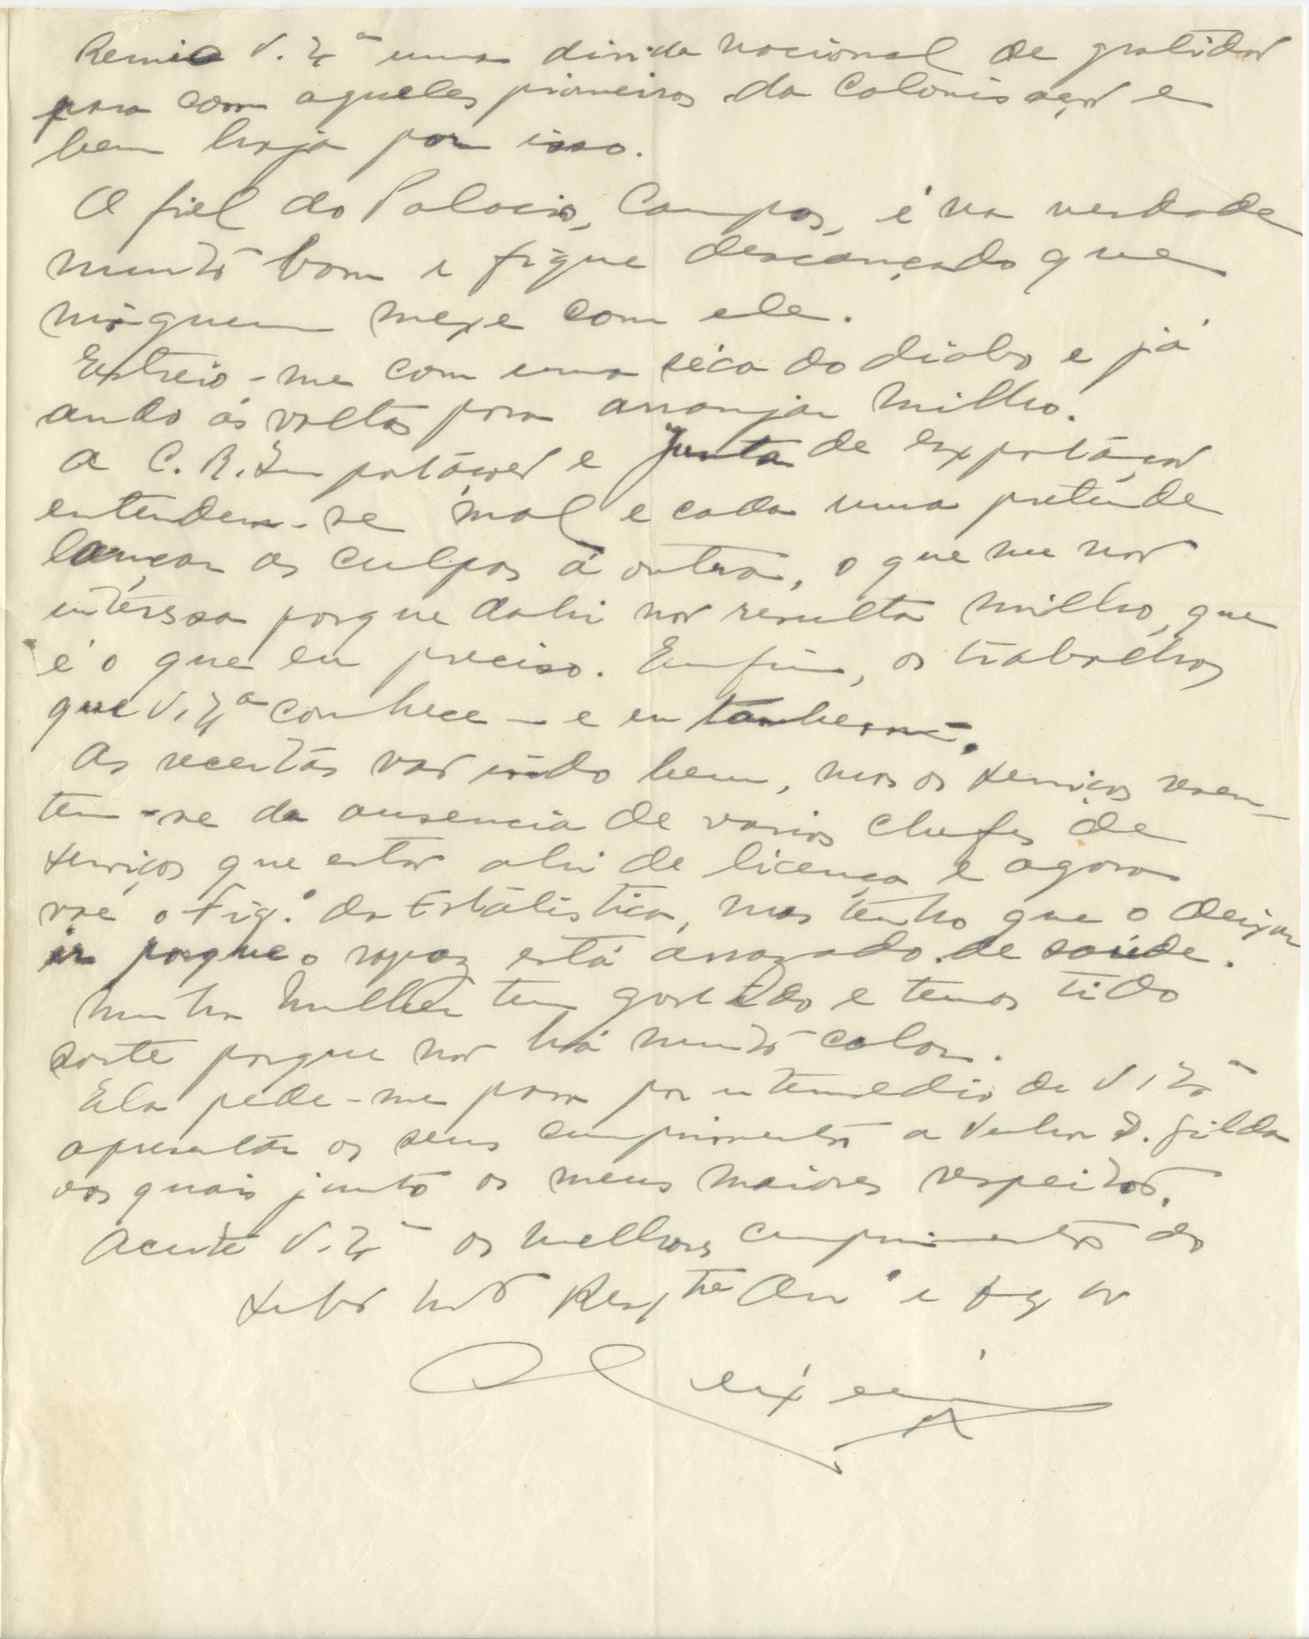 Remia V. Exª uma divida nacional de gratidão
para com aqueles pioneiros da colonisação e
bem haja por isso.
O fiel do Palacio, Campos, é na verdade
muito bom e fique descançado que
ninguem mexe com ele.
Estreio-me com uma séca do diabo e já
ando ás voltas para arranjar milho.
A C. R. Importáção e Junta de Exportáção
entendem-se mal e cada uma preténde
lançar as culpas á outra, o que me não
intéressa porque dahi não resulta milho, que
é o que eu preciso. Emfim, os trabalhos
que V. Exª conhece – e eu tambem.
As receitas vão indo bem, mas os serviços resen-
tem-se da ausencia de varios chefes de
serviços que estão ahi de licença e agora
vae o Fig.º da Estátistica, mas tenho que o deixar
ir porque o rapaz está arrazado de saúde.
Minha Mulher tem gostado e temos tido
sorte porque não há muito calor.
Ela pede-me para por intermedio de V. Exª
apresentar os seus cumprimentos a Senhora D. Gilda
aos quais junto os meus maiores respeitos.
Aceite V. Exª os melhores cumprimentos do